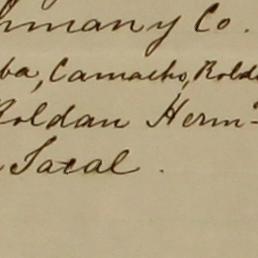 hman y Co.
ba, Camacho, Rold
Roldan Herm-
Sacal.